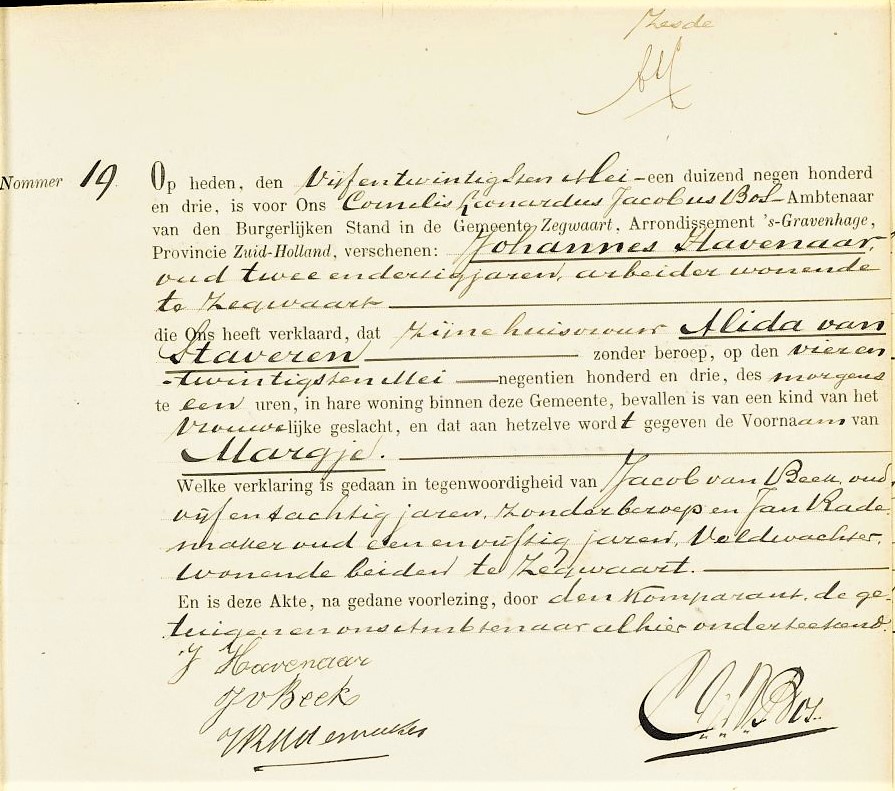 Zesde
Nommer 19.
Op heden, den Vijfentwintigsten Mei een duizend negen honderd
en drie, is voor Ons Cornelis Leonardus Jacobus Bos Ambtenaar
van den Burgerlijken Stand in de Gemeente Zegwaart, Arrondissement 's-Gravenhage,
Provincie Zuid-Holland, verschenen: Johannes Havenaar,
oud twee en dertig jaren, arbeider wonende
te Zegwaart
die Ons heeft verklaard, dat zijne huisvrouw Alida van
Staveren zonder beroep, op den vieren-
twintigsten Mei negentien honderd en drie, des morgens
te een uren, in hare woning binnen deze Gemeente, bevallen is van een kind van het
vrouwelijke geslacht, en dat aan hetzelve wordt gegeven de Voornaam van
Margje.
Welke verklaring is gedaan in tegenwoordigheid van Jacob van Beek, oud
vijf en tachtig jaren, zonder beroep en Jan Rade-
maker oud een en vijftig jaren, Veldwachter,
wonende beiden te Zegwaart.
En is deze Akte, na gedane voorlezing, door den Komparant, de ge-
tuigen en ons Ambtenaar alhier onderteekend.
J Havenaar
J v Beek
J Rademaker
C L J Bos.